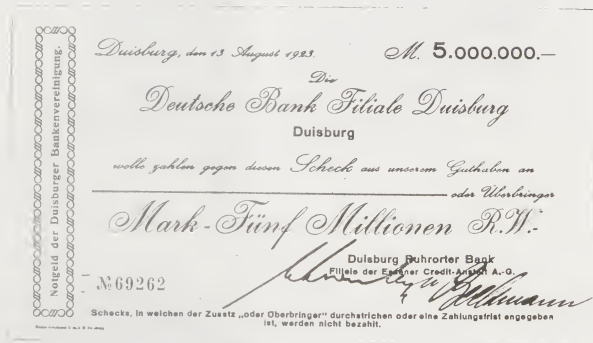 Notgeld der Duisburger Bankenvereinigung.
Duisburg, den 13. August 1923. M. 5.000.000.—
Die
Deutsche Bank Filiale Duisburg
Duisburg
wolle zahlen gegen diesen Scheck aus unserem Guthaben an
oder Überbringer
Mark-Fünf Millionen R.W.-
Duisburg Ruhrorter Bank
Filiale der Essener Credit-Anstalt A.-G.
№ 69262
Schecks, in welchen der Zusatz „oder Überbringer" durchstrichen oder eine Zahlungsfrist angegeben
ist, werden nicht bezahlt.